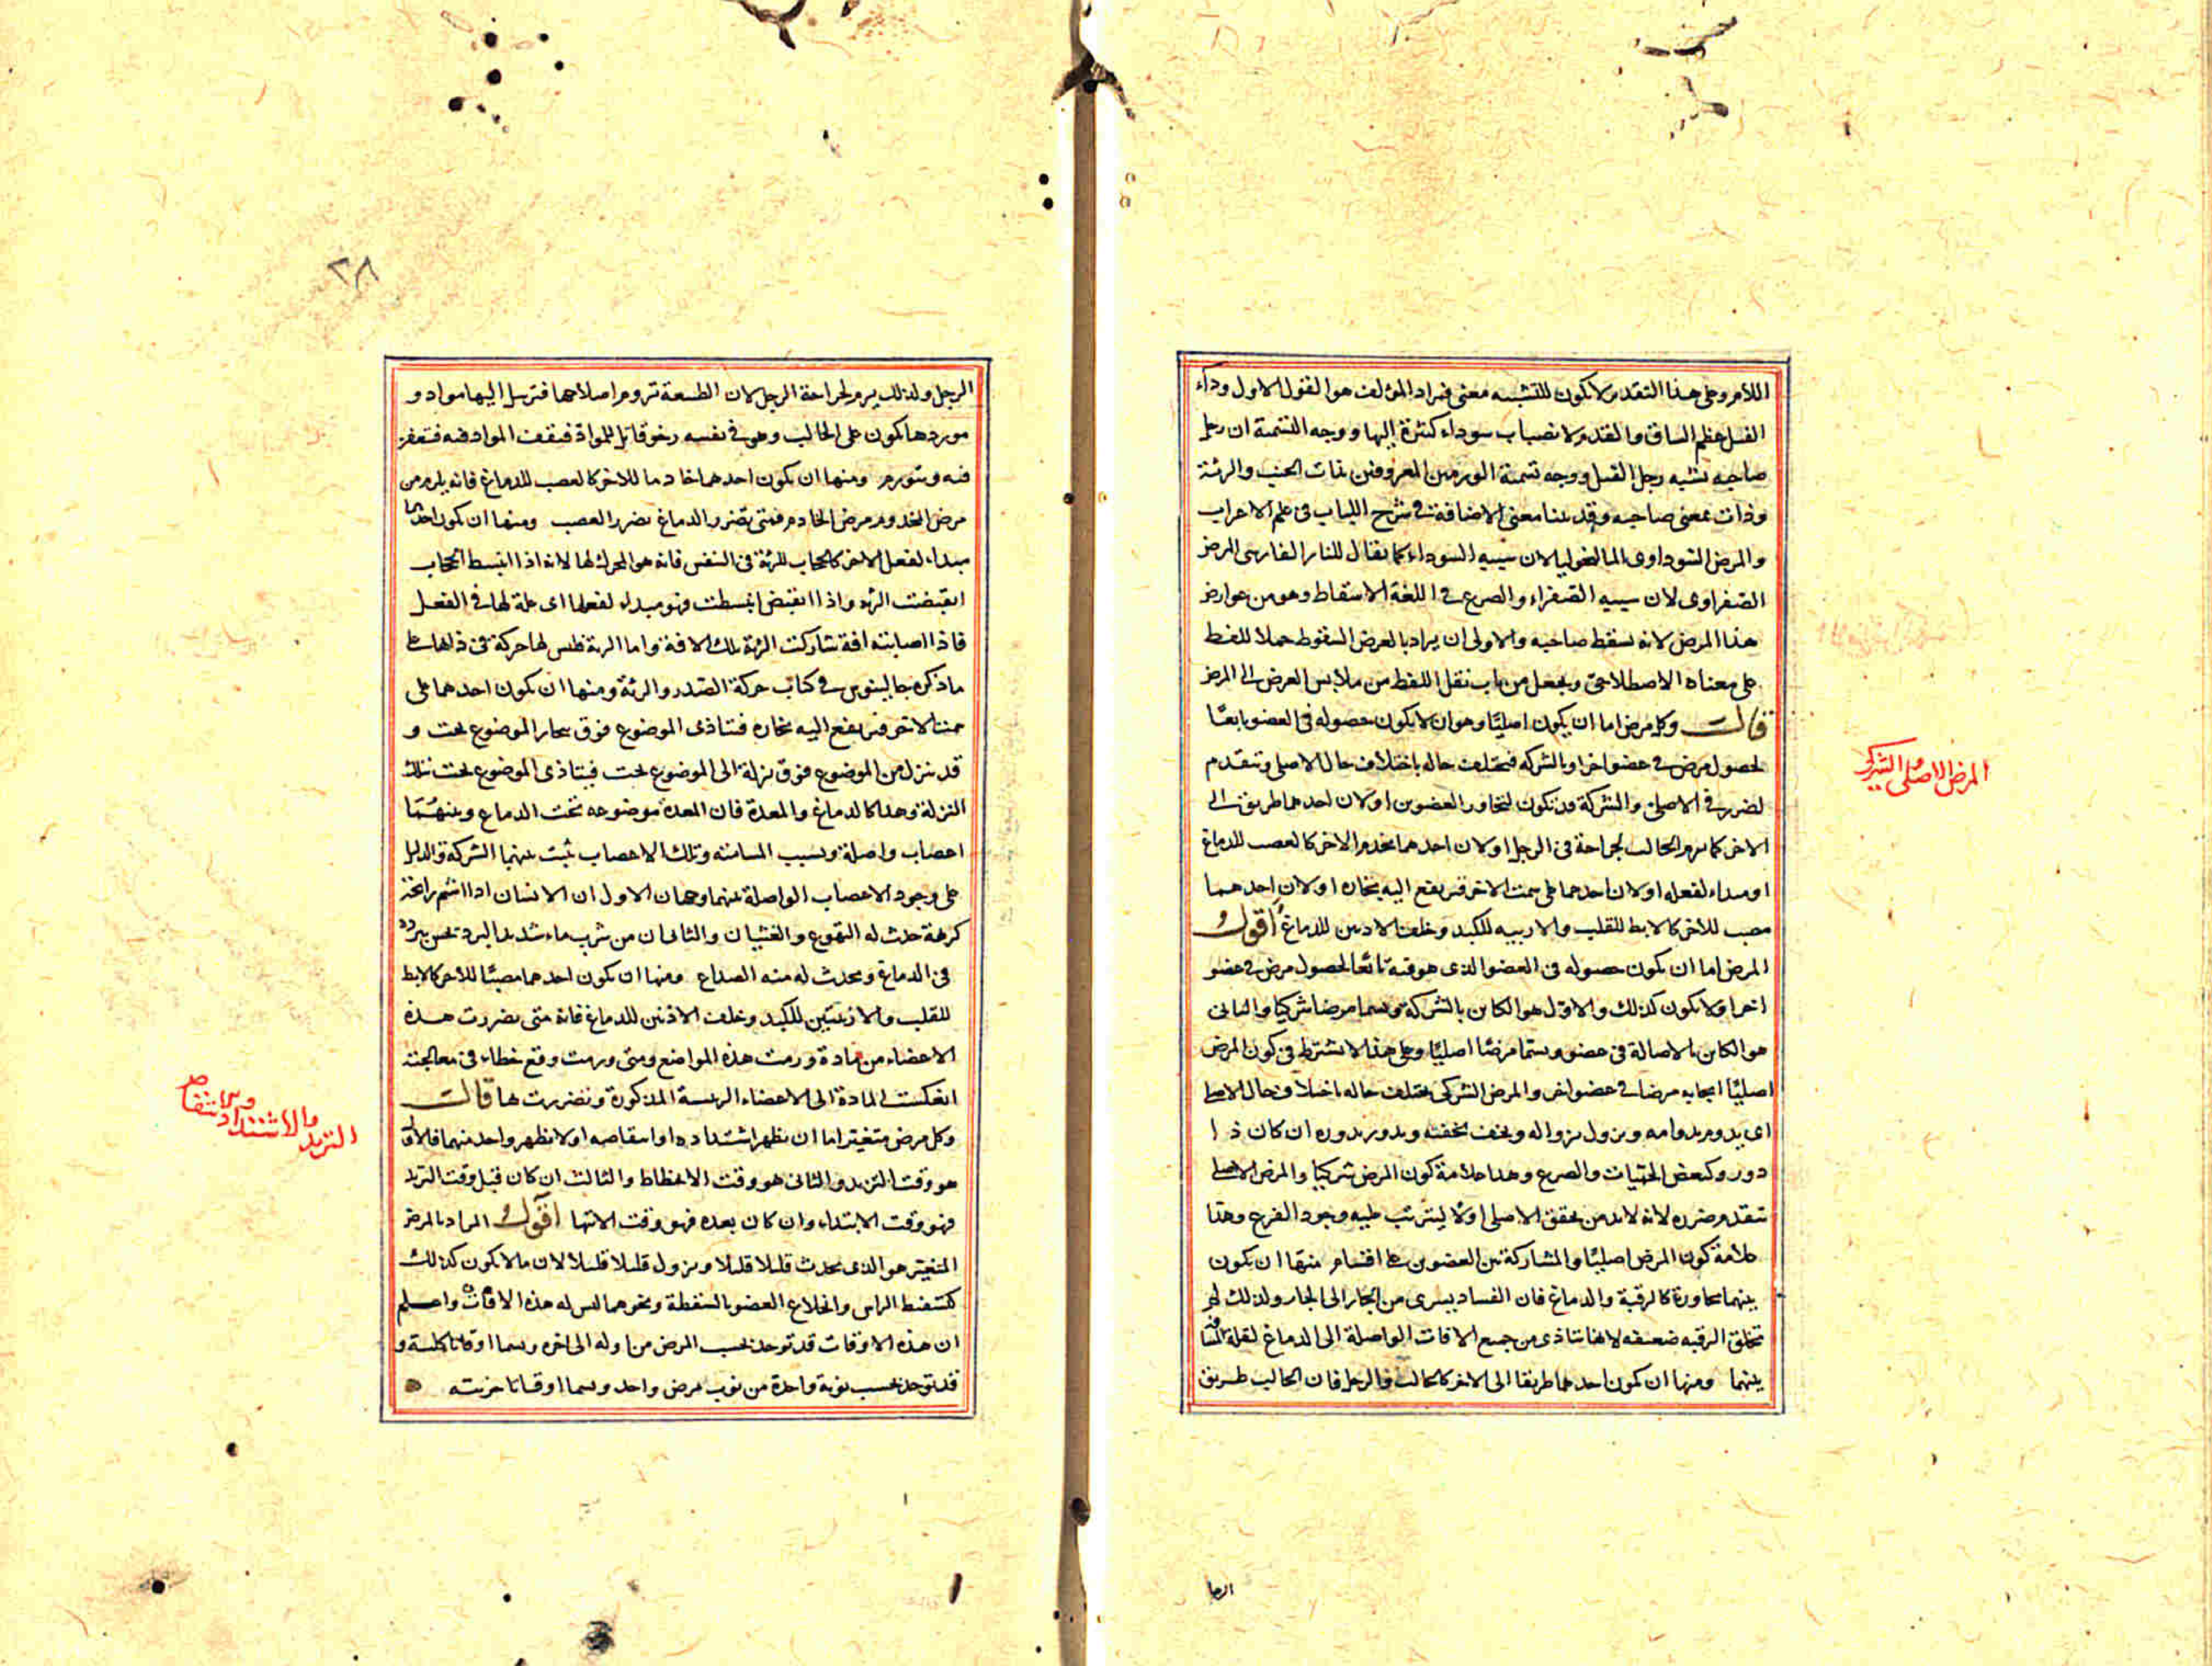 اللام وعلى هذا التقدير لا يكون للتشبيه معنى فمراد المؤلف هو القول الاول وداء
الفيل عظم الساق والقدم لانصباب سوداء كثيرة اليها ووجه التسمية ان رجل
صاحبه تشبه رجل الفيل ووجه تسمية الورمين المعروفين بذات الجنب والرئة
وذات بمعنى صاحبه وقد بينا معنى الاضافة في شرح اللباب في علم الاعراب
والمرض السوداوى المالنخوليا لان سببه السوداء كما يقال للنار الفارسى المرض
الصفراوى لان سببه الصفراء والصرع في اللغة الاسقاط وهو من عوارض
هذا المرض لانه يسقط صاحبه والاولى ان يراد بالعرض السقوط حملا للفظ
على معناه الاصطلاحى ويجعل من باب نقل اللفظ من ملابس العرض الى المرض
قال وكل مرض اما ان يكون اصليا وهو ان لا يكون حصوله في العضو تابعا
لحصول مرض في عضو اخر او بالشركه فيختلف حاله باختلاف حال الاصلى ويتقدم
لضرر في الاصلى والشركة قد تكون لتجاور العضوين او لان احدهما طريق الى
الاخر كما يرم الحالب لجراحة في الرجل او لان احدهما يخدم الاخر كالعصب للدماغ
او مبداء لفعله او لان احدهما على سمت الاخر فيرتفع اليه بخاره او لان احدهما
مصب للاخر كالابط للقلب والاربيه للكبد وخلف الاذنين للدماغ اقول
المرض اما ان يكون حصوله في العضو الذى هو فيه تابعا لحصول مرض في عضو
اخر او لا يكون كذلك والاول هو الكاين بالشركة ويسما مرضا شركيا والثانى
هو الكاين بالاصالة في عضو ويسما مرضا اصليا وعلى هذا لا يشترط في كون المرض
اصليا ايجابه مرضا في عضو اخر والمرض الشركى يختلف حاله باختلاف حال الاصلى
اى يدوم بدوامه ويزول بزواله ويخف بخفته ويدور بدوره ان كان ذا
دور وكبعض الحميات والصرع وهذا علامة كون المرض شركيا والمرض الاصلى
يتقدم ضرره لانه لابد من تحقق الاصلى اولا ليترتب عليه وجود الفرع وهذا
علامة كون المرض اصليا والمشاركة بين العضوين على اقسام منها ان يكون
بينهما مجاورة كالرقبة والدماغ فان الفساد يسرى من الجار الى الجار ولذلك لم
تخلق الرقبه ضعيفه لانها تتاذى من جميع الافات الواصلة الى الدماغ لقلة المسافة
بينهما ومنها ان يكون احدهما طريقا الى الاخر كالحالب والرجل فان الحالب طريق
الرجل
المرض الاصلى والشركى
٢٨
الرجل ولذلك يرم لجراحة الرجل لان الطبيعة تروم اصلاحها فترسل اليها مواد و
مورها يكون على الحالب وهو في نفسه رخو قابل للمواد فيقف المواد فيه فتعفن
فيه ويتورم ومنها ان يكون احدهما خادما للاخر كالعصب للدماغ فانه يلزم من
مرض المخدوم مرض الخادم فمتى تضرر الدماغ تضرر العصب ومنها ان يكون احدهما
مبداء لفعل الاخر كالحجاب للرئة في التنفس فانه هو المحرك لها لانه اذا انبسط الحجاب
انقبضت الرئه واذا انقبض انبسطت فهو مبداء لفعلها اى علة لها في الفعل
فاذا اصابته افة شاركت الرئة تلك الافة واما الرئة فليس لها حركة في ذاتها على
ما ذكره جالينوس في كتاب حركة الصدر والرئة ومنها ان يكون احدهما على
سمت الاخر فيرتفع اليه بخاره فيتاذى الموضوع فوق ببخار الموضوع تحت و
قد ينزل من الموضوع فوق نزلة الى الموضوع تحت فيتاذى الموضوع تحت بتلك
النزلة وهذا كالدماغ والمعدة فان المعدة موضوعه تحت الدماغ وبينهما
اعصاب واصلة وبسبب المسامتة وتلك الاعصاب ثبت بينهما الشركة والدليل
على وجود الاعصاب الواصلة بينهما وجهان الاول ان الانسان اذا اشتم رائحة
كريهة حدث له التهوع والغثيان والثانى ان من شرب ماء شديد البرد يحس ببرده
في الدماغ ويحدث له منه الصداع ومنها ان يكون احدهما مصبا للاخر كالابط
للقلب والاربيتين للكبد وخلف الاذنين للدماغ فانه متى تضررت هذه
الاعضاء من مادة ورمت هذه المواضع ومتى ورمت وقع خطاء في معالجته
انعكست المادة الى الاعضاء الرئيسة المذكورة وتضررت لها قال
وكل مرض متغير اما ان يظهر اشتداده او انتقاصه او لا يظهر واحد منهما فالاول
هو وقت التزيد والثانى هو وقت الانحطاط والثالث ان كان قبل وقت التزيد
فهو وقت الابتداء وان كان بعده فهو وقت الانتها اقول المراد بالمرض
المتغير هو الذى يحدث قليلا قليلا ويزول قليلا قليلا لان ما لا يكون كذلك
كتسفط الراس وانخلاع العضو بالسقطة ونحوهما ليس له هذه الاوقات واعلم
ان هذه الاوقات قد توجد بحسب المرض من اوله الى اخره ويسما اوقاتا كلية و
قد توجد بحسب نوبة واحدة من نوب مرض واحد ويسما اوقاتا جزئيه
التزيد والاشتداد والانتقاص